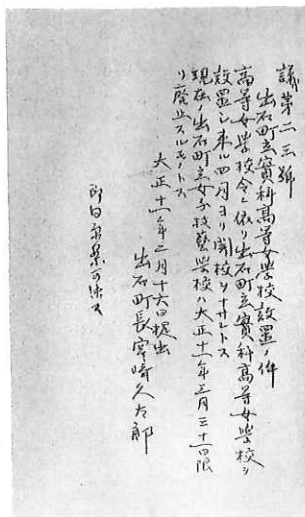 議第二三號
出石町立實科高等女學校設置ノ件
高等女學校令ニ依リ出石町立實科高等女學校ヲ
設置シ来ル四月ヨリ開校ヲナサントス
現在ノ出石町立女子技藝學校ハ大正十一年三月三十一日限
リ廃止スルモノトス
大正十一年二月十六日提出
出石町長宮崎久太郎
即日原案可決ス